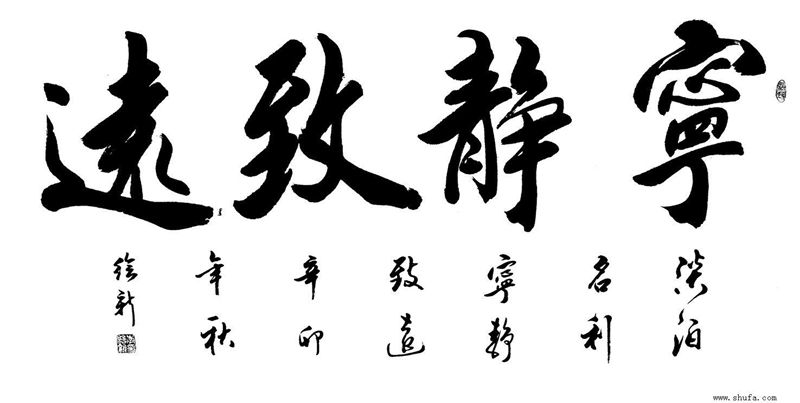 寧靜致遠
淡泊
名利
寧靜
致遠
辛卯
年秋
徐新
www.shufa.com